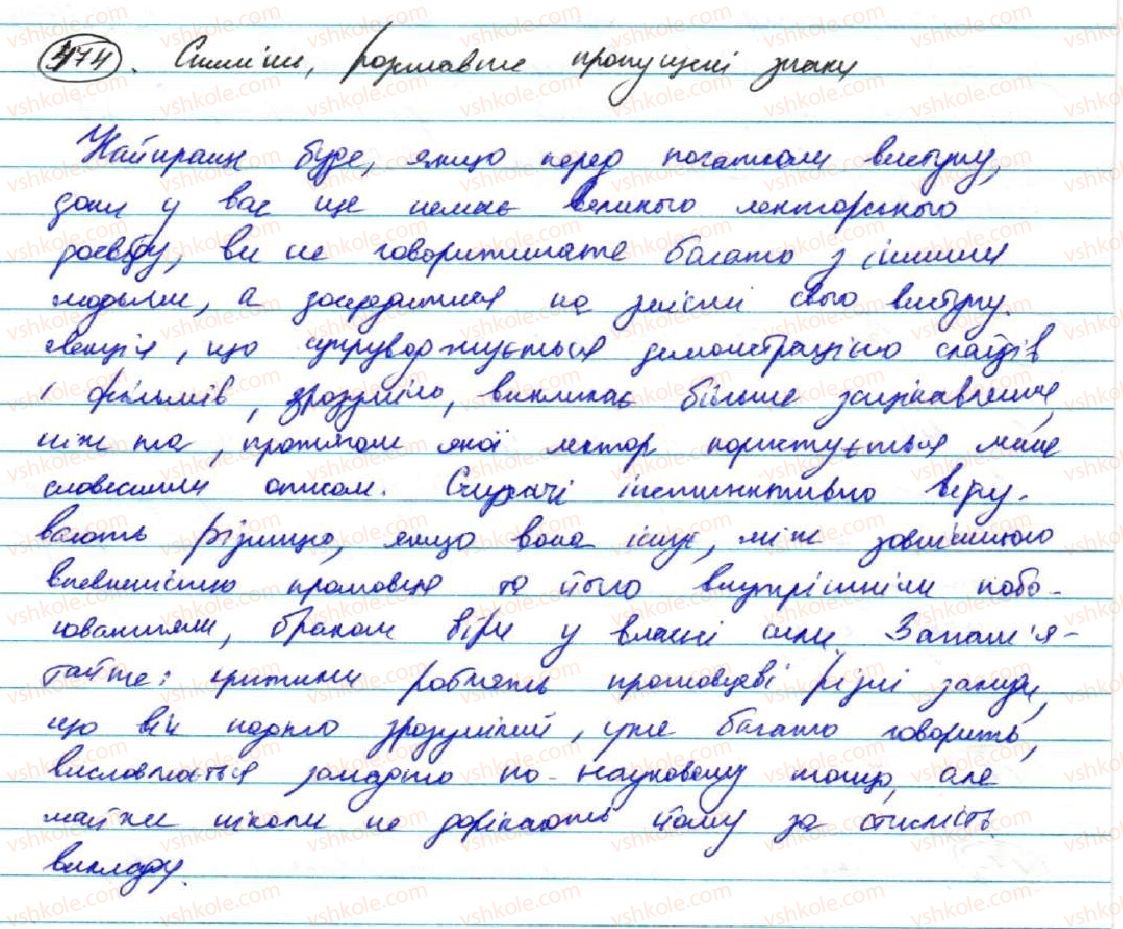 474. Спиши, розставте пропущені знаки
Найкраще буде, якщо перед початком виступу,
доки у вас ще немає великого лекторського
досвіду, ви не говоритимете багато з іншими
людьми, а зосередитися на змісті свого виступу.
Лекція, що супроводжується демонстрацією слайдів
і фільмів, зрозуміло, викликає більше зацікавлення,
ніж та, протягом якої лектор користується лише
словесним описом. Слухачі інстинктивно вери-
вають різницю, якщо вона існує, між зовнішньою
впевненістю промовця та його внутрішніми побо-
юваннями, браком віри у власні сили. Запам'я-
тайте: критики роблять промовцеві різні закиди,
що він надто зрозумілий, дуже багато говорить,
висловлюється занадто по-науковому тощо, але
майже ніколи не дорікають йому за стислість
викладу.